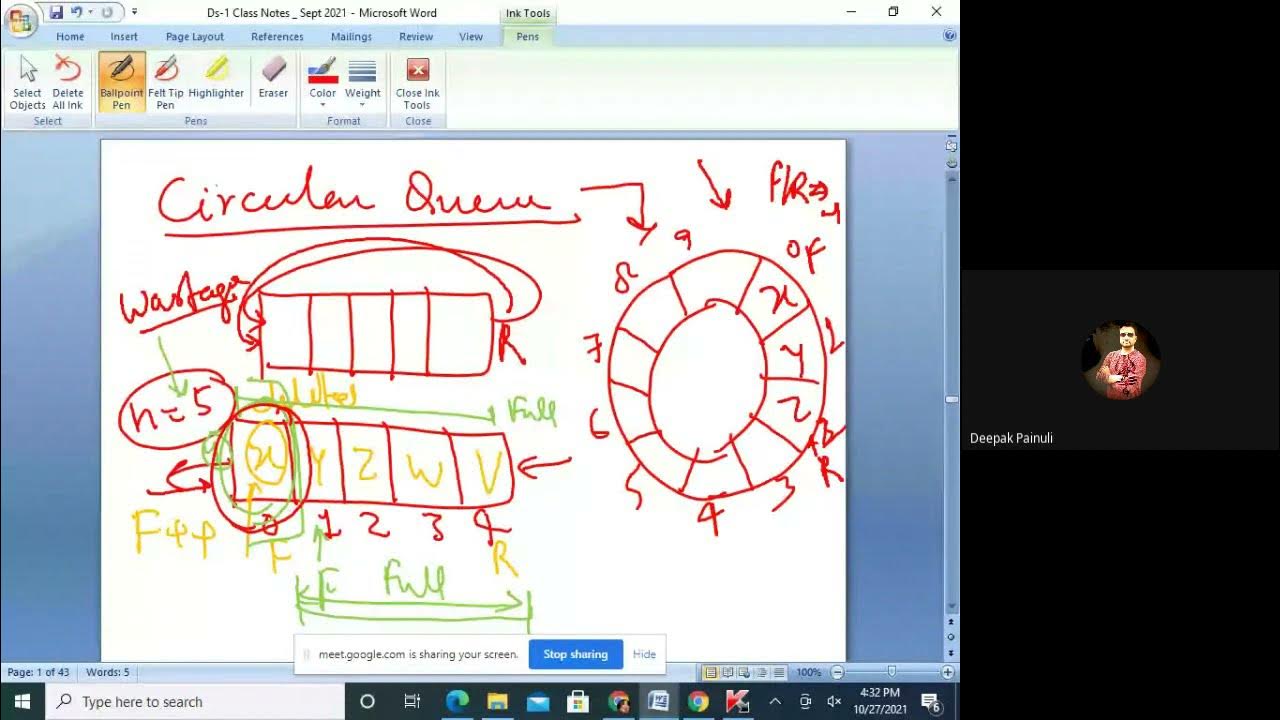 Ds-1 Class Notes _ Sept 2021 - Microsoft Word
Ink Tools
Home Insert Page Layout References Mailings Review View Pens
Select Objects
Delete All Ink
Ballpoint Pen
Felt Tip Pen
Highlighter
Eraser
Color
Weight
Close Ink Tools
Select Pens Format Close
Circular Queue
F/R⇒-1
Wastage
R
n=5
Full
x Y Z W V
0 1 2 3 4
F++
F
R
F Full
9
0 F
8
x
7
Y
1
Z
6
R
5
4
3
meet.google.com is sharing your screen. Stop sharing Hide
Page: 1 of 43 Words: 5
100%
Type here to search
4:32 PM
10/27/2021
6
Deepak Painuli